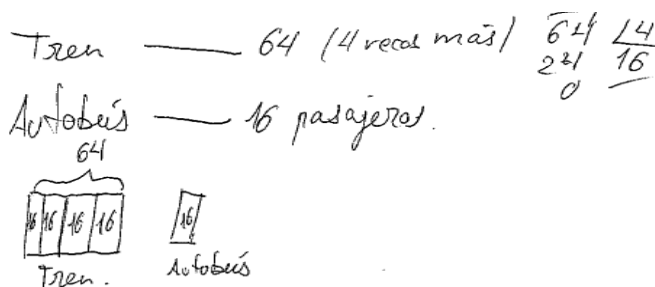 Tren — 64 (4 veces más) 64 | 4
24 16
0
Autobús — 16 pasajeros.
64
16 16 16 16 16
Tren. Autobús